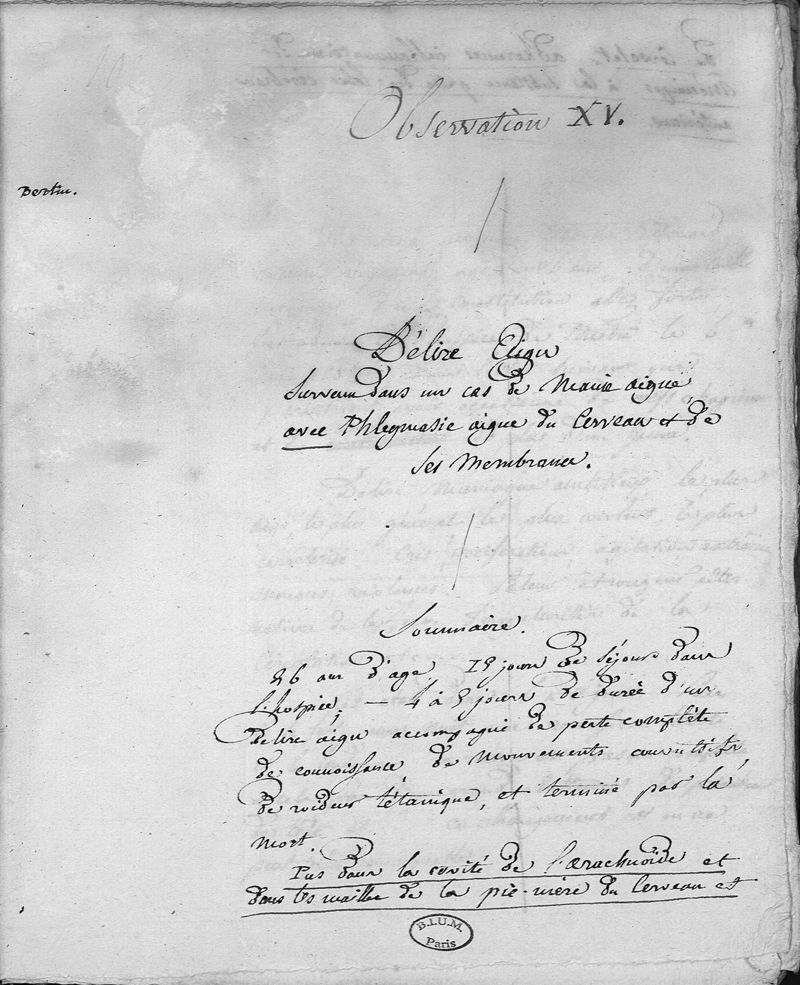 Observation XV.
Bertin.
Délire Aigu
Survenu dans un cas de Manie aigue,
avec Phlegmasie aigue du Cerveau et de
ses Membranes.
Sommaire.
26 ans d'age, 15 jours de séjour dans
l'hospice, — 4 à 5 jours de durée d'un
Délire aigu accompagné de perte complète
de connoissance, de mouvements convulsifs
de roideur tétanique, et terminé par la
mort.
Pus dans la cavité de l'arachnoïde et
dans les mailles de la pie-mère du Cerveau et
B.I.U.M.
Paris